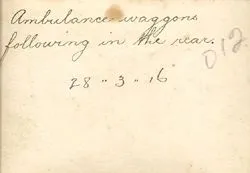 Ambulance waggons
following in the rear.
D12
28 " 3 " 16